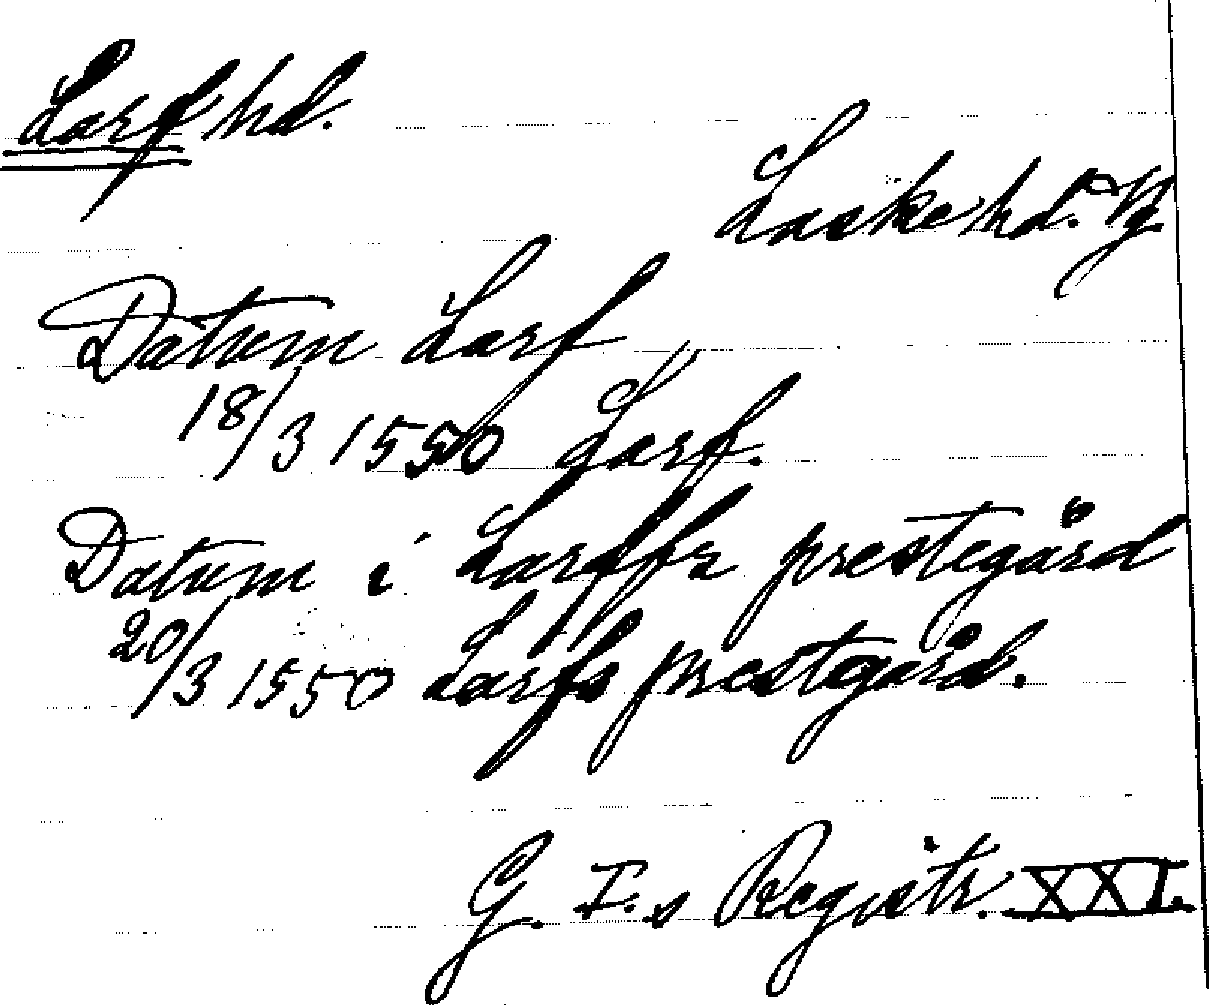 Larf hd.
Laske hd. Vg
Datum Larf
18/3 1550 Larf.
Datum i Larffz prestegård
20/3 1550 Larfs prestegård.
G. I.s Registr. XXI.